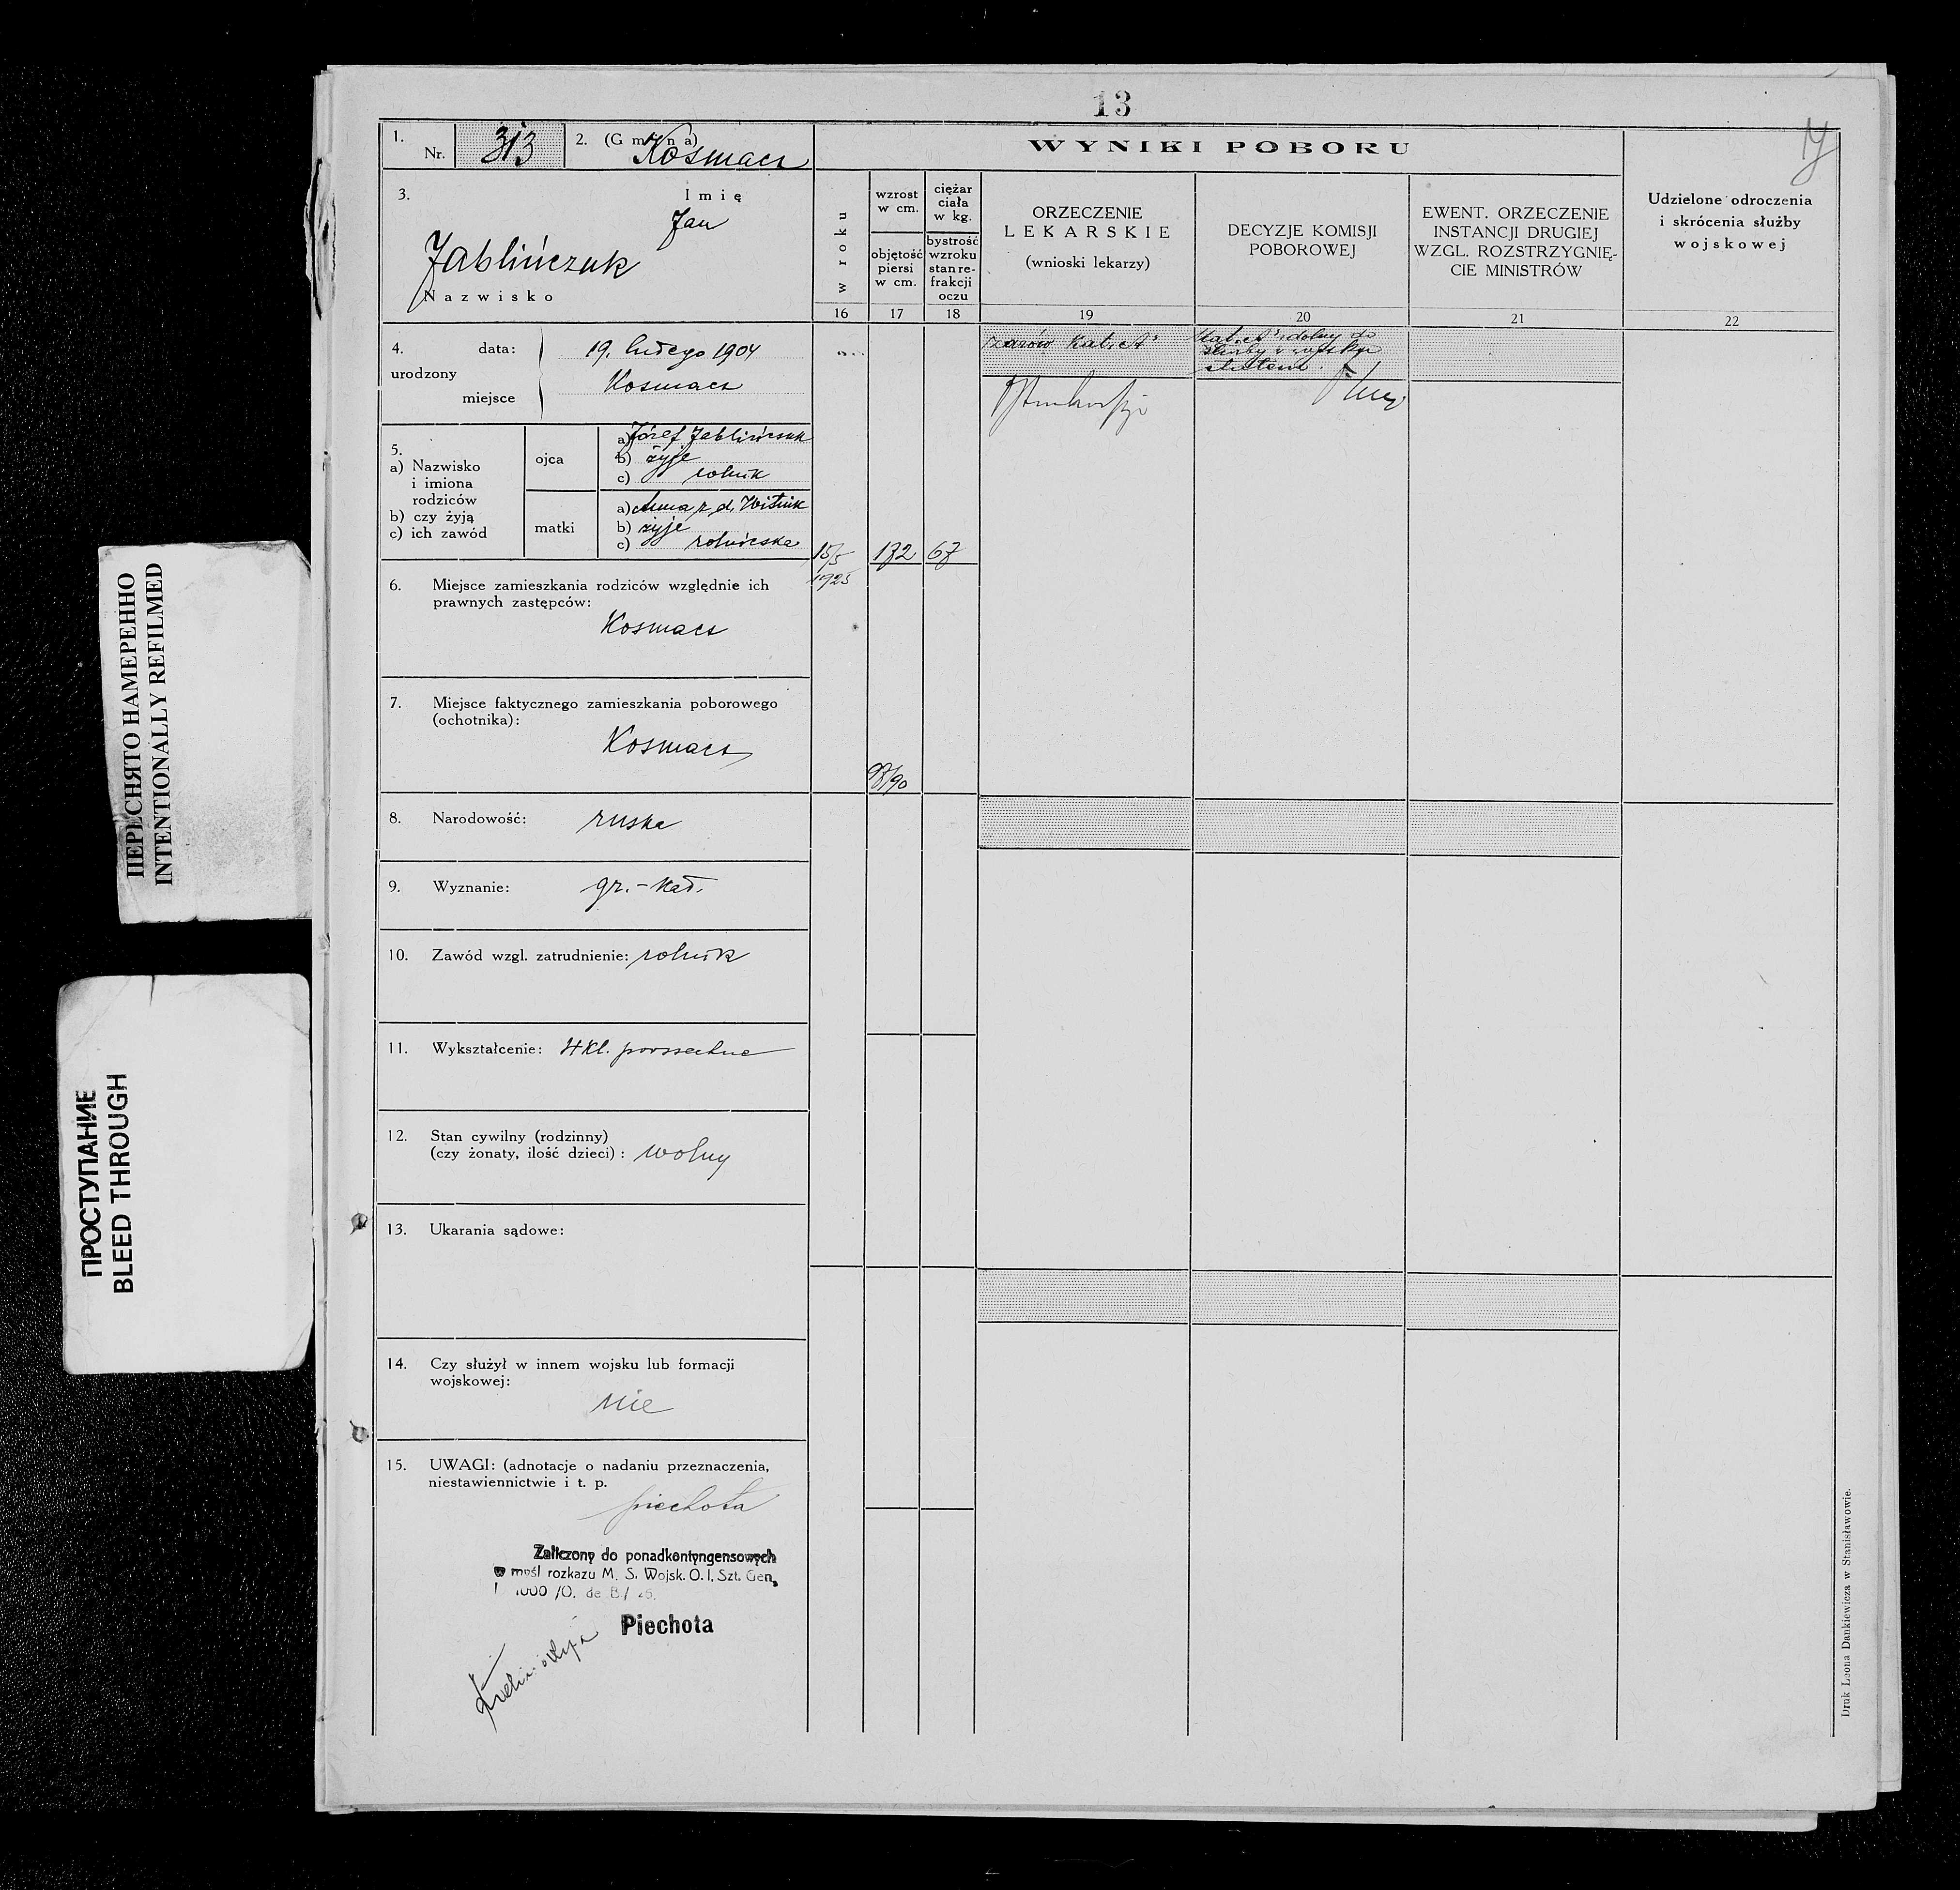 13
1. Nr. 313
2. (Gmina) Kosmacz
3. Imię
Jan
Jablińczuk
Nazwisko
4. urodzony
data: 19. lutego 1904
miejsce Kosmacz
5.
a) Nazwisko i imiona rodziców
b) czy żyją
c) ich zawód
ojca
a) Józef Jablińczuk
b) żyje
c) rolnik
matki
a) Anna z d.
b) żyje
c) rolniczka
6. Miejsce zamieszkania rodziców względnie ich
prawnych zastępców:
Kosmacz
7. Miejsce faktycznego zamieszkania poborowego
(ochotnika):
Kosmacz
8. Narodowość: ruska
9. Wyznanie: gr.-kat.
10. Zawód wzgl. zatrudnienie: rolnik
11. Wykształcenie: 4 kl. powszechne
12. Stan cywilny (rodzinny)
(czy żonaty, ilość dzieci): wolny
13. Ukarania sądowe:
14. Czy służył w innem wojsku lub formacji
wojskowej:
nie
15. UWAGI: (adnotacje o nadaniu przeznaczenia,
niestawiennictwie i t. p.
piechota
Zaliczony do ponadkontyngensowych
w myśl rozkazu M. S. Wojsk. O. I. Szt. Gen.
Piechota
WYNIKI POBORU
w roku
16
wzrost
w cm.
objętość
piersi
w cm.
17
ciężar
ciała
w kg.
bystrość
wzroku
stan re-
frakcji
oczu
18
ORZECZENIE
LEKARSKIE
(wnioski lekarzy)
19
DECYZJE KOMISJI
POBOROWEJ
20
EWENT. ORZECZENIE
INSTANCJI DRUGIEJ
WZGL. ROZSTRZYGNIĘ-
CIE MINISTRÓW
21
Udzielone odroczenia
i skrócenia służby
wojskowej
22
15/5
1925
172
67
98/90
zdrów kat. "A"
kat. "A" zdolny do
służby w wojsku
stałem.
Druk Leona Dankiewicza w Stanisławowie.
ПЕРЕСНЯТО НАМЕРЕННО
INTENTIONALLY REFILMED
ПРОСТУПАНИЕ
BLEED THROUGH